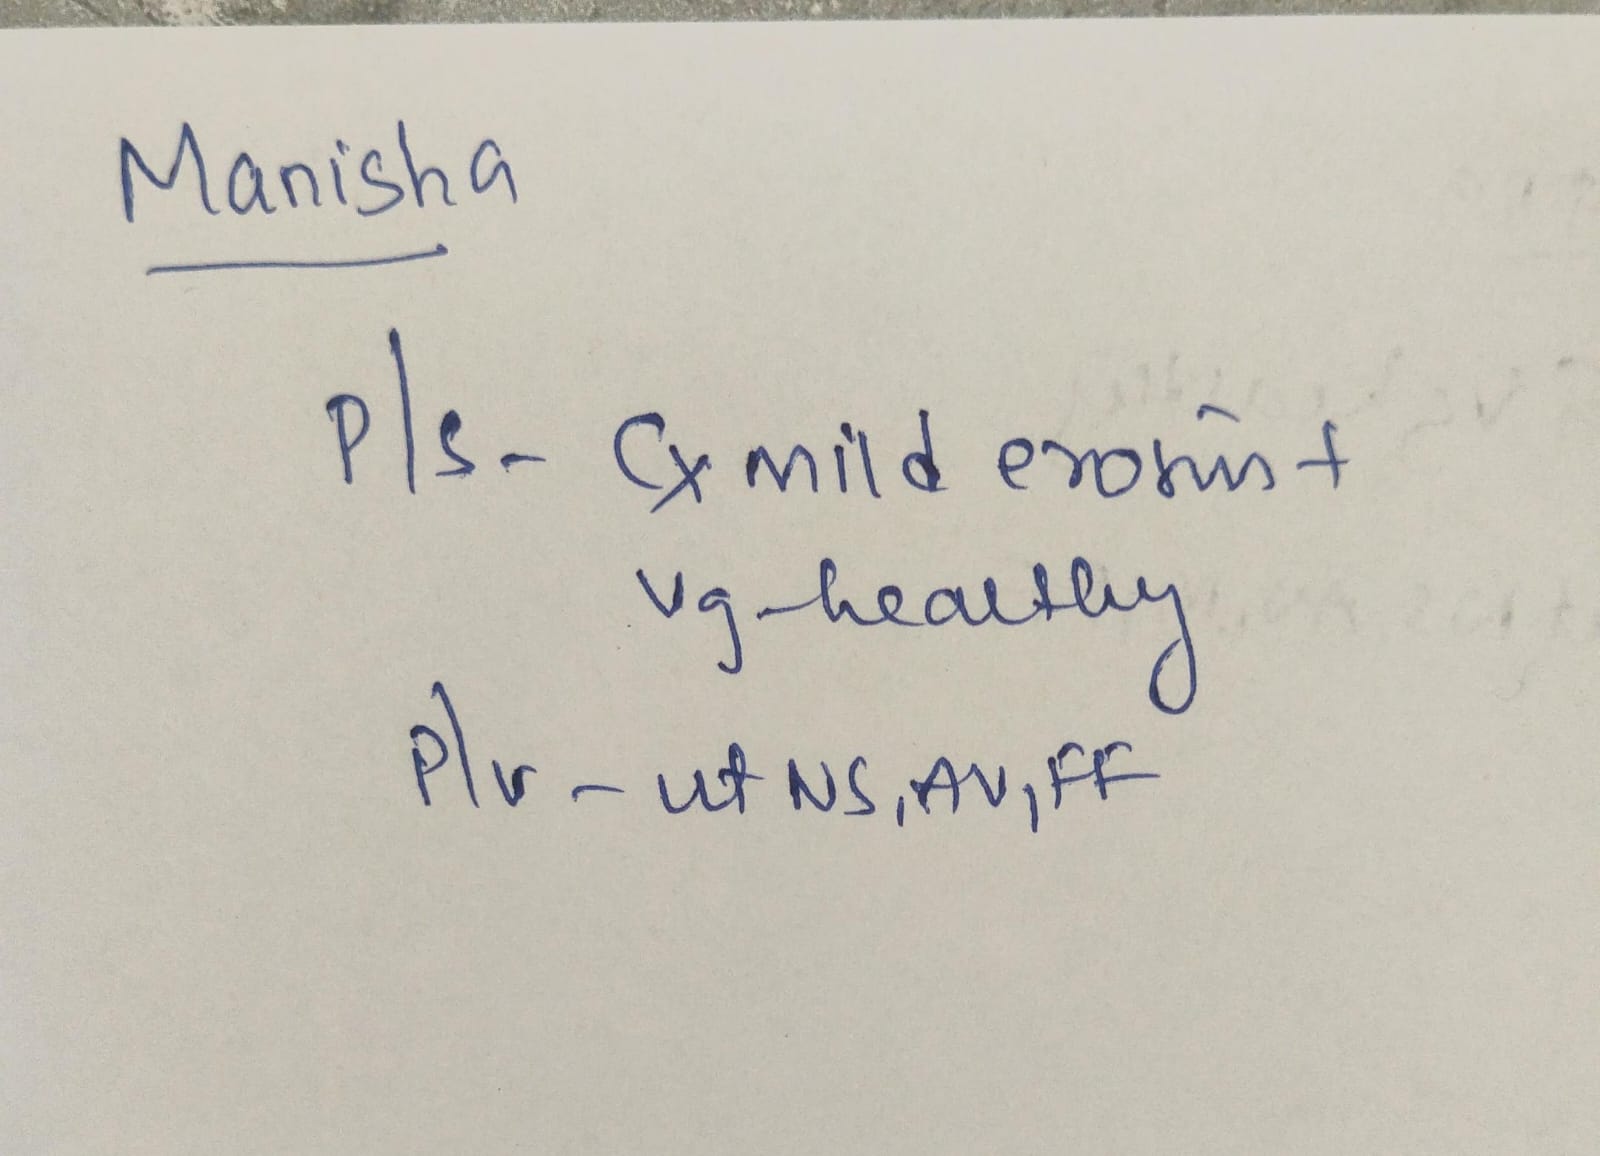 Manisha
P/s - Cx mild erosion +
Vg - healthy
P/v - ut NS, AV, FF